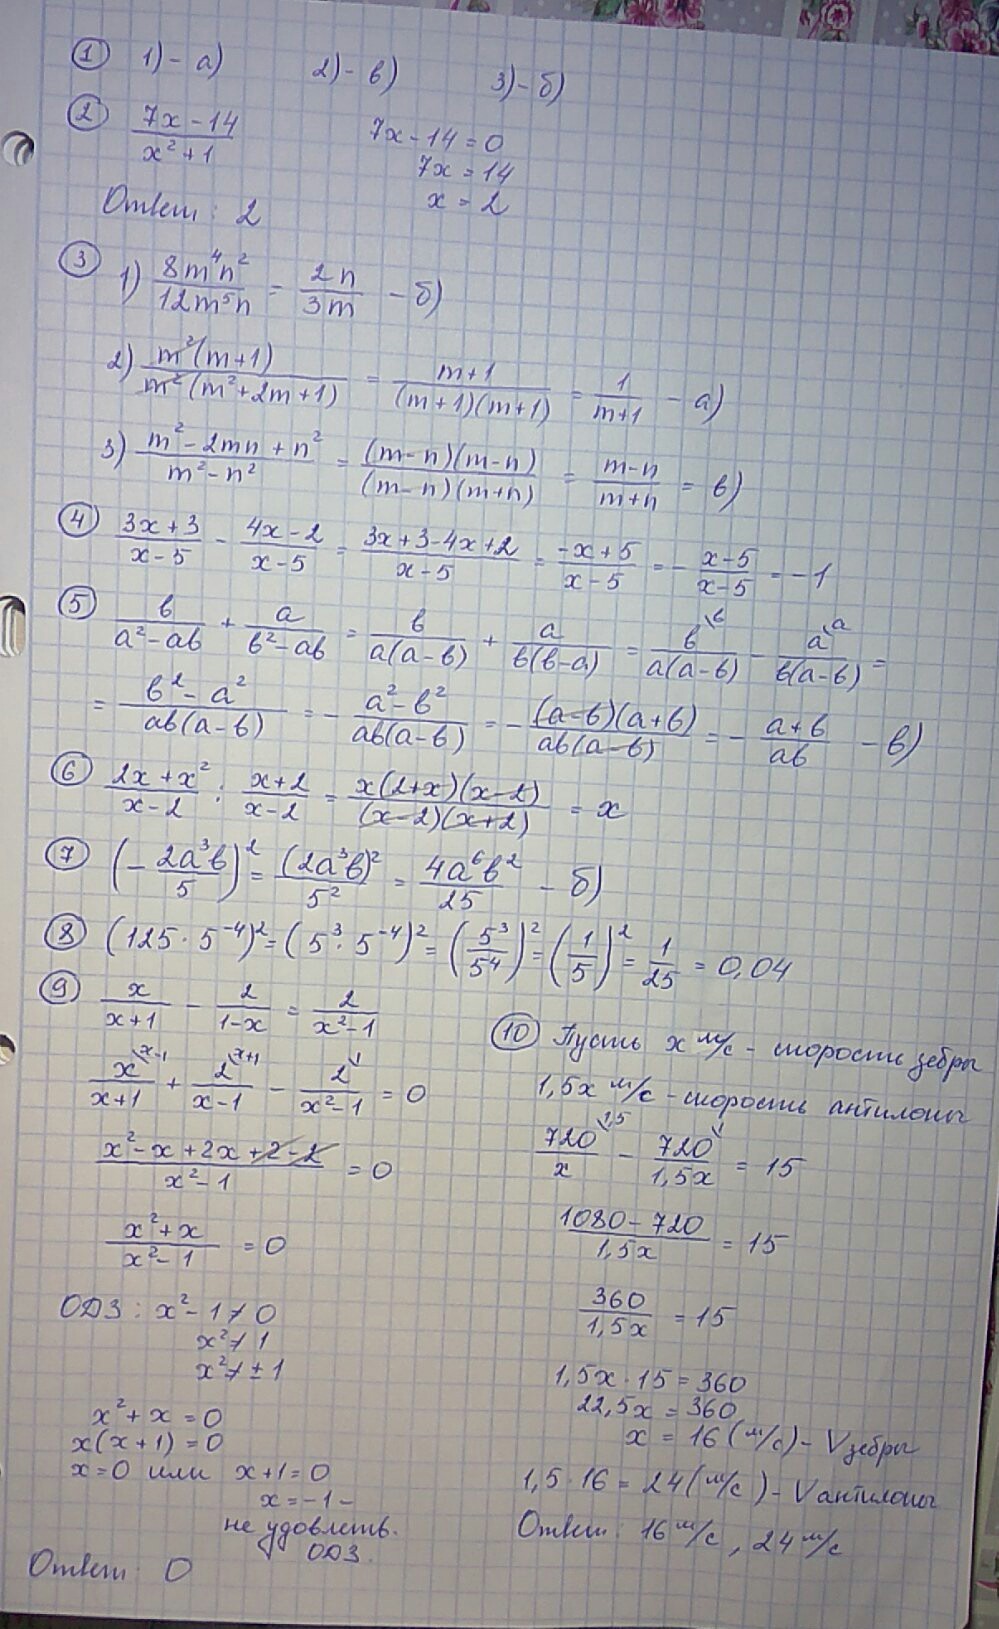 ① 1) - а) 2) - в) 3) - б)
② (7x - 14)/(x² + 1) 7x - 14 = 0
7x = 14
x = 2
Ответ: 2
③ 1) 8m⁴n²/12m⁵n = 2n/3m - б)
2) m²(m+1)/(m²(m²+2m+1)) = (m+1)/((m+1)(m+1)) = 1/(m+1) - а)
3) (m² - 2mn + n²)/(m² - n²) = ((m-n)(m-n))/((m-n)(m+n)) = (m-n)/(m+n) = в)
④ (3x+3)/(x-5) - (4x-2)/(x-5) = (3x+3-4x+2)/(x-5) = (-x+5)/(x-5) = - (x-5)/(x-5) = -1
⑤ в/(a²-aв) + a/(в²-aв) = в/(a(a-в)) + a/(в(в-a)) = в\в/(a(a-в)) - a\a/(в(a-в)) =
= (в²-a²)/(aв(a-в)) = - (a²-в²)/(aв(a-в)) = - ((a-в)(a+в))/(aв(a-в)) = - (a+в)/(aв) - в)
⑥ (2x+x²)/(x-2) : (x+2)/(x-2) = (x(2+x)(x-2))/((x-2)(x+2)) = x
⑦ (- 2a³в/5)² = (2a³в)²/5² = 4a⁶в²/25 - б)
⑧ (125 · 5⁻⁴)² = (5³ · 5⁻⁴)² = (5³/5⁴)² = (1/5)² = 1/25 = 0,04
⑨ x/(x+1) - 2/(1-x) = 2/(x²-1)
x\x-1/(x+1) + 2\x+1/(x-1) - 2\1/(x²-1) = 0
(x²-x+2x+2-2)/(x²-1) = 0
(x²+x)/(x²-1) = 0
ОДЗ: x²-1 ≠ 0
x² ≠ 1
x² ≠ ±1
x²+x = 0
x(x+1) = 0
x=0 или x+1=0
x = -1 -
не удовлетв.
ОДЗ.
Ответ: 0
⑩ Пусть x м/с - скорость зебры
1,5x м/с - скорость антилопы
720\1,5/x - 720\1/1,5x = 15
(1080-720)/1,5x = 15
360/1,5x = 15
1,5x · 15 = 360
22,5x = 360
x = 16 (м/с) - V зебры
1,5 · 16 = 24 (м/с) - V антилопы
Ответ: 16 м/с, 24 м/с